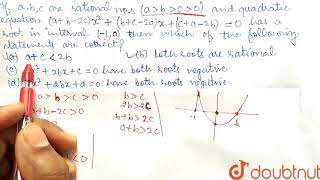 If a,b,c are rational nos (a>b>c>0) and quadratic
equation (a+b-2c)x²+(b+c-2a)x+(c+a-2b)=0 has a
root in interval (-1,0) then which of the following
statements are correct?
(a) a+c<2b (b) both roots are rational
(c) x²+2bx+c=0 have both roots negative
(d) x²+2bx+a=0 have both roots negative
a>b>c>0
b>c
+b-2c>0
2b>2c
b+b>2c
a+b>2c
<0
-1
0
doubtnut